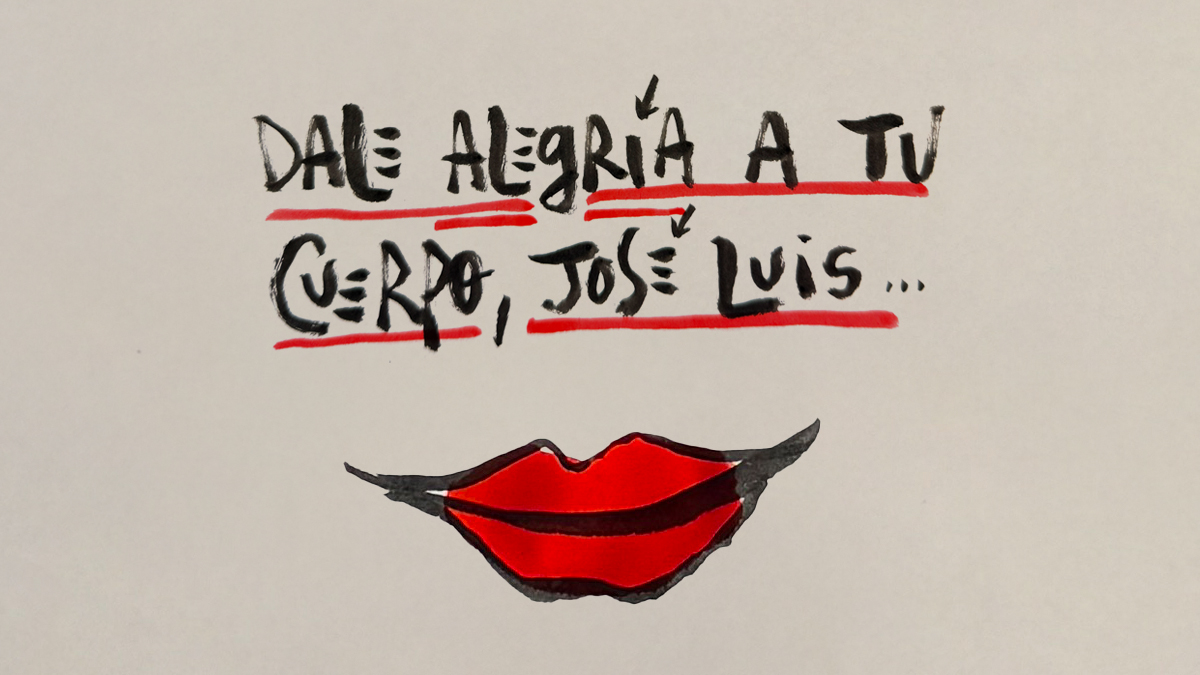 DALE ALEgRÍA A TU
CUERPO, JOSÉ LUiS...